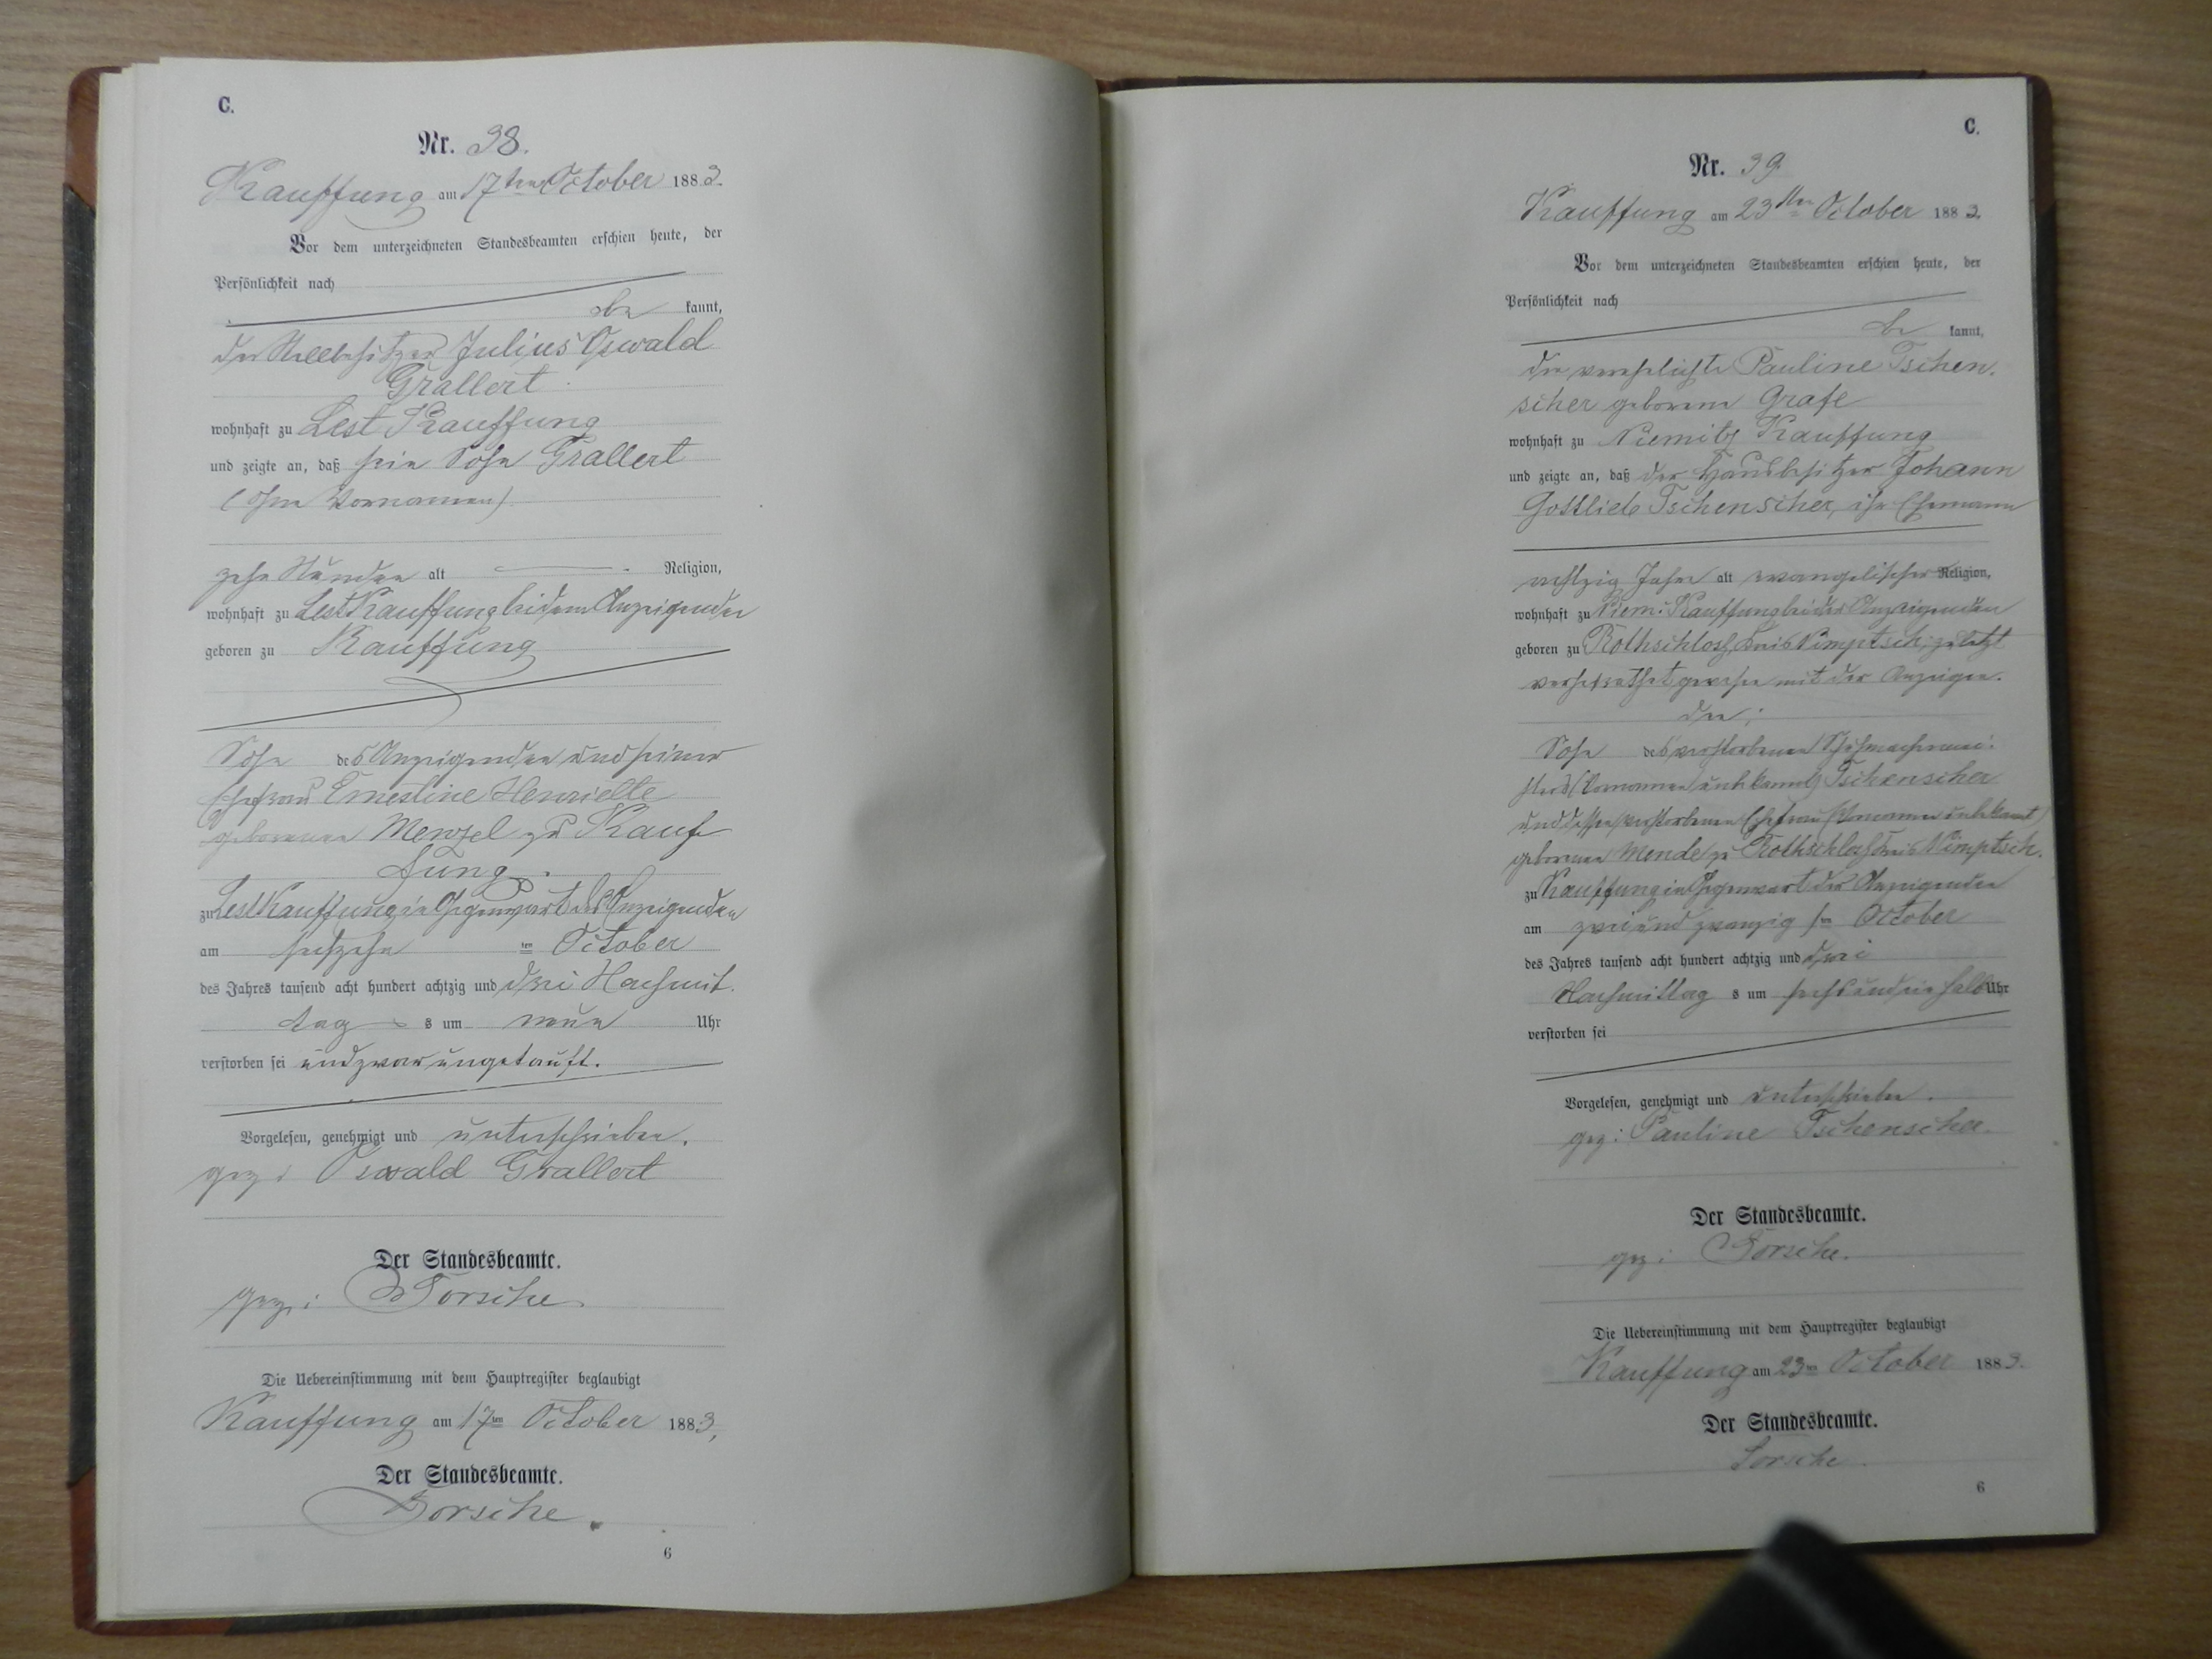 C.
Nr. 38.
Kauffung am 17ten October 1883.
Vor dem unterzeichneten Standesbeamten erschien heute, der
Persönlichkeit nach
be kannt,
der Stellbesitzer Julius Oswald
Grallert
wohnhaft zu Lest Kauffung
und zeigte an, daß sein Sohn Grallert
(ohne Vornamen)
zehn Stunden alt Religion,
wohnhaft zu Lest Kauffung bei dem Anzeigenden
geboren zu Kauffung
Sohn des Anzeigenden und seiner
Ehefrau Ernestine Henriette
geborenen Menzel zu Kauf
fung.
zu Lest Kauffung in Gegenwart des Anzeigenden
am sechszehn ten October
des Jahres tausend acht hundert achtzig und drei Nachmit.
tag s um neun Uhr
verstorben sei und zwar ungetauft.
Vorgelesen, genehmigt und unterschrieben.
gez: Oswald Grallert
Der Standesbeamte.
gez: Torsche
Die Uebereinstimmung mit dem Hauptregister beglaubigt
Kauffung am 17ten October 1883,
Der Standesbeamte.
Torsche.
6
C.
Nr. 39.
Kauffung am 23ten October 1883.
Vor dem unterzeichneten Standesbeamten erschien heute, der
Persönlichkeit nach
be kannt,
die verehelichte Pauline Tschen.
scher geborene Grafe
wohnhaft zu Niemitz Kauffung
und zeigte an, daß der Hausbesitzer Johann
Gottlieb Tschenscher, ihr Ehemann
achtzig Jahre alt evangelischer Religion,
wohnhaft zu Niem: Kauffung bei der Anzeigenden
geboren zu Rothschloß, Kreis Nimptsch, zuletzt
verheirathet gewesen mit der Anzeigen.
den;
Sohn des verstorbenen Schuhmachermei:
sters (Vornamen unbekannt) Tschenscher
und dessen verstorbenen Ehefrau (Vornamen unbekannt)
geborenen Mende zu Rothschloß Kreis Nimptsch.
zu Kauffung in Gegenwart der Anzeigenden
am zwei und zwanzig sten October
des Jahres tausend acht hundert achtzig und drei
Nachmittag s um sechs und ein halb Uhr
verstorben sei
Vorgelesen, genehmigt und unterschrieben.
gez: Pauline Tschenscher.
Der Standesbeamte.
gez: Torsche.
Die Uebereinstimmung mit dem Hauptregister beglaubigt
Kauffung am 23ten October 1883.
Der Standesbeamte.
Torsche.
6